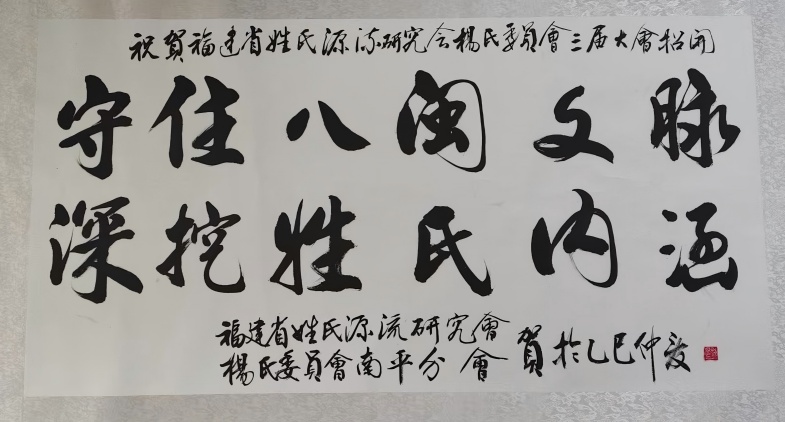 祝賀福建省姓氏源流研究会楊氏委員會三届大會招開
守住八闽文脉
深挖姓氏内涵
福建省姓氏源流研究會
楊氏委員會南平分會
賀於乙巳仲夏